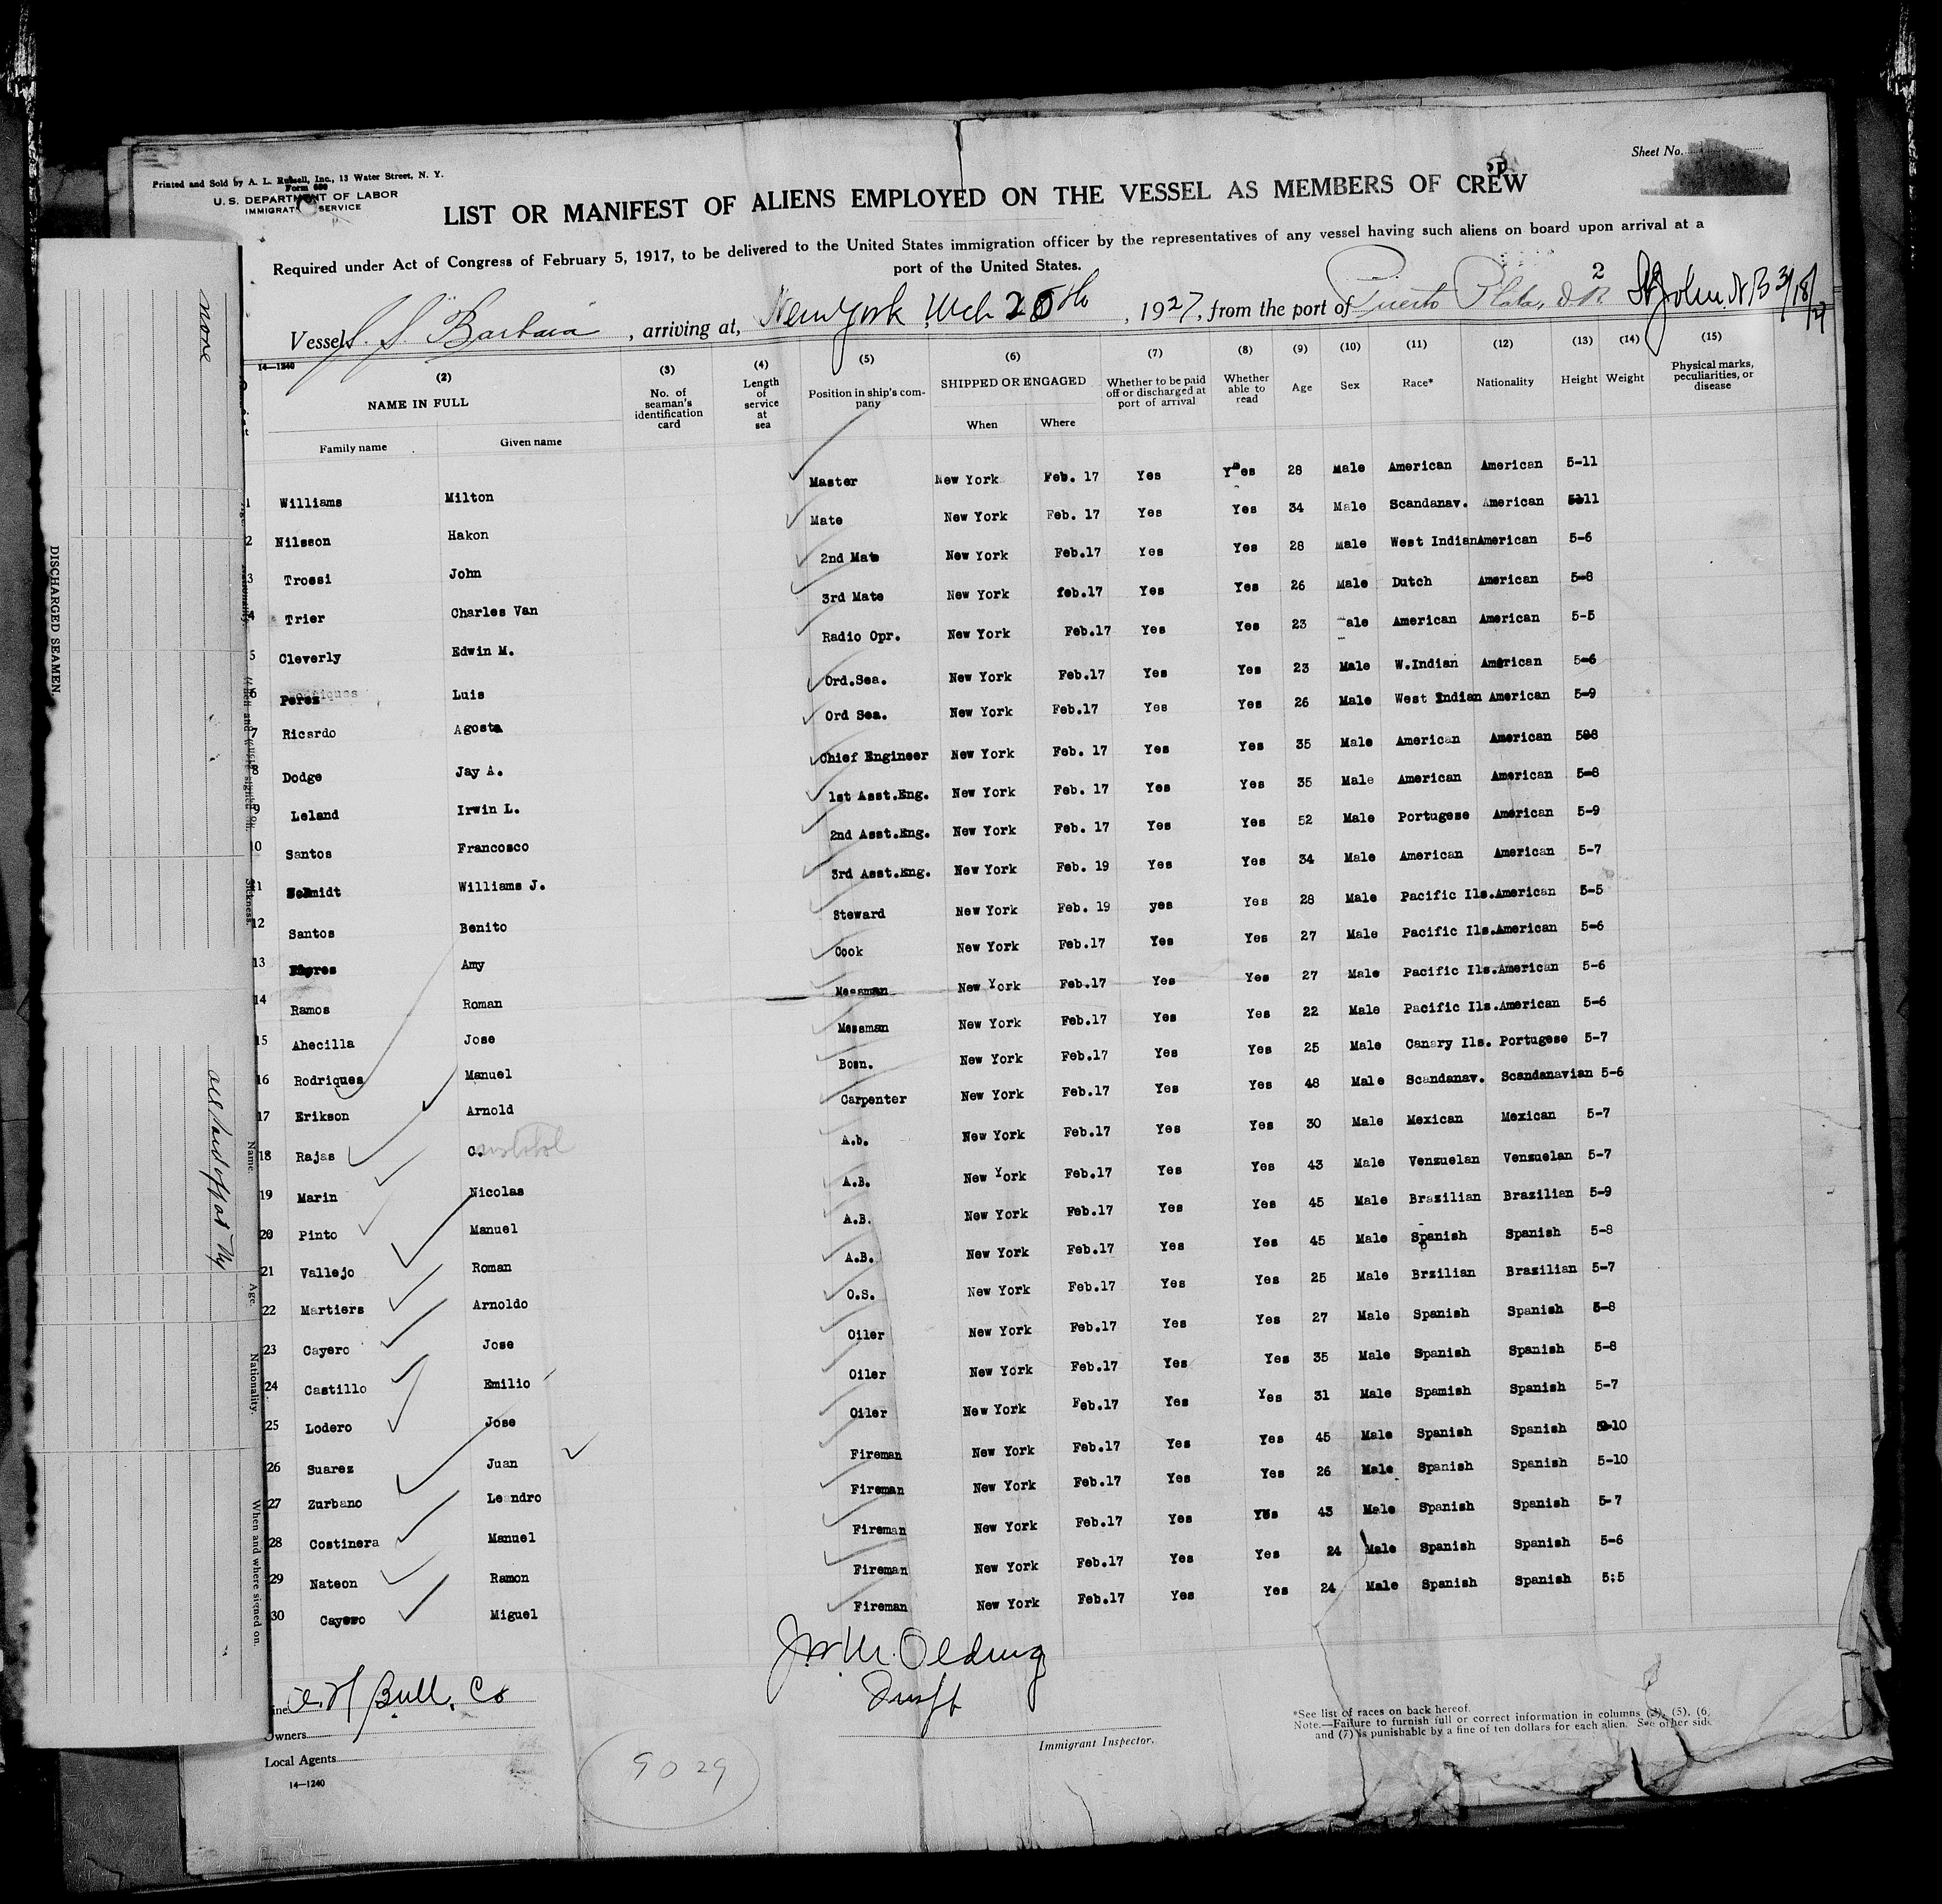 Sheet No.
Printed and Sold by A. L. Russell, Inc., 13 Water Street, N. Y.
Form 680
U. S. DEPARTMENT OF LABOR
IMMIGRAT SERVICE
LIST OR MANIFEST OF ALIENS EMPLOYED ON THE VESSEL AS MEMBERS OF CREW
Required under Act of Congress of February 5, 1917, to be delivered to the United States immigration officer by the representatives of any vessel having such aliens on board upon arrival at a
port of the United States.
Vessel S. S. Barbara, arriving at, New York Mch 20th, 1927, from the port of Puerto Plata, D.R. 2 St John. N B 3/18/27
14—1240
(2) (3) (4) (5) (6) (7) (8) (9) (10) (11) (12) (13) (14) (15)
NAME IN FULL No. of seaman's identification card Length of service at sea Position in ship's company SHIPPED OR ENGAGED Whether to be paid off or discharged at port of arrival Whether able to read Age Sex Race* Nationality Height Weight Physical marks, peculiarities, or disease
Family name Given name When Where
1 Williams Milton Master New York Feb. 17 Yes Yes 28 Male American American 5-11
2 Nilsson Hakon Mate New York Feb. 17 Yes Yes 34 Male Scandanav. American 5-11
3 Trossi John 2nd Mate New York Feb.17 Yes Yes 28 Male West Indian American 5-6
4 Trier Charles Van 3rd Mate New York feb.17 Yes Yes 26 Male Dutch American 5-8
5 Cleverly Edwin M. Radio Opr. New York Feb.17 Yes Yes 23 ale American American 5-5
6 Perez Luis Ord.Sea. New York Feb.17 Yes Yes 23 Male W.Indian American 5-6
7 Ricardo Agosta Ord Sea. New York Feb.17 Yes Yes 26 Male West Indian American 5-9
8 Dodge Jay A. Chief Engineer New York Feb. 17 Yes Yes 35 Male American American 5-8
9 Leland Irwin L. 1st Asst.Eng. New York Feb. 17 Yes Yes 35 Male American American 5-8
10 Santos Francosco 2nd Asst.Eng. New York Feb. 17 Yes Yes 52 Male Portugese American 5-9
11 Schmidt Williams J. 3rd Asst.Eng. New York Feb. 19 Yes Yes 34 Male American American 5-7
12 Santos Benito Steward New York Feb. 19 yes Yes 28 Male Pacific Ils. American 5-5
13 Amy Cook New York Feb.17 Yes Yes 27 Male Pacific Ils. American 5-6
14 Ramos Roman Messman New York Feb.17 Yes Yes 27 Male Pacific Ils. American 5-6
15 Ahecilla Jose Messman New York Feb.17 Yes Yes 22 Male Pacific Ils. American 5-6
16 Rodriques Manuel Bosn. New York Feb.17 Yes Yes 25 Male Canary Ils. Portugese 5-7
17 Erikson Arnold Carpenter New York Feb.17 Yes Yes 48 Male Scandanav. Scandanavian 5-6
18 Rajas C. A.b. New York Feb.17 Yes Yes 30 Male Mexican Mexican 5-7
19 Marin Nicolas A.B. New York Feb.17 Yes Yes 43 Male Venzuelan Venzuelan 5-7
20 Pinto Manuel A.B. New York Feb.17 Yes Yes 45 Male Brazilian Brazilian 5-9
21 Vallejo Roman A.B. New York Feb.17 Yes Yes 45 Male Spanish Spanish 5-8
22 Martiers Arnoldo O.S. New York Feb.17 Yes Yes 25 Male Brzilian Brasilian 5-7
23 Cayero Jose Oiler New York Feb.17 Yes Yes 27 Male Spanish Spanish 5-8
24 Castillo Emilio Oiler New York Feb.17 Yes Yes 35 Male Spanish Spanish 5-8
25 Lodero Jose Oiler New York Feb.17 Yes Yes 31 Male Spamish Spanish 5-7
26 Suarez Juan Fireman New York Feb.17 Yes Yes 45 Male Spanish Spanish 5-10
27 Zurbano Leandro Fireman New York Feb.17 Yes Yes 26 Male Spanish Spanish 5-10
28 Costinera Manuel Fireman New York Feb.17 Yes Yes 43 Male Spanish Spanish 5-7
29 Nateon Ramon Fireman New York Feb.17 Yes Yes 24 Male Spanish Spanish 5-6
30 Cayero Miguel Fireman New York Feb.17 Yes Yes 24 Male Spanish Spanish 5;5
A. H. Bull. Co
Owners
Local Agents
14—1240
9029
Immigrant Inspector.
*See list of races on back hereof.
Note.—Failure to furnish full or correct information in columns (3), (5), (6,
and (7) is punishable by a fine of ten dollars for each alien. See other side
none
DISCHARGED SEAMEN.
Sickness.
Name.
Age.
Nationality.
When and where signed on.